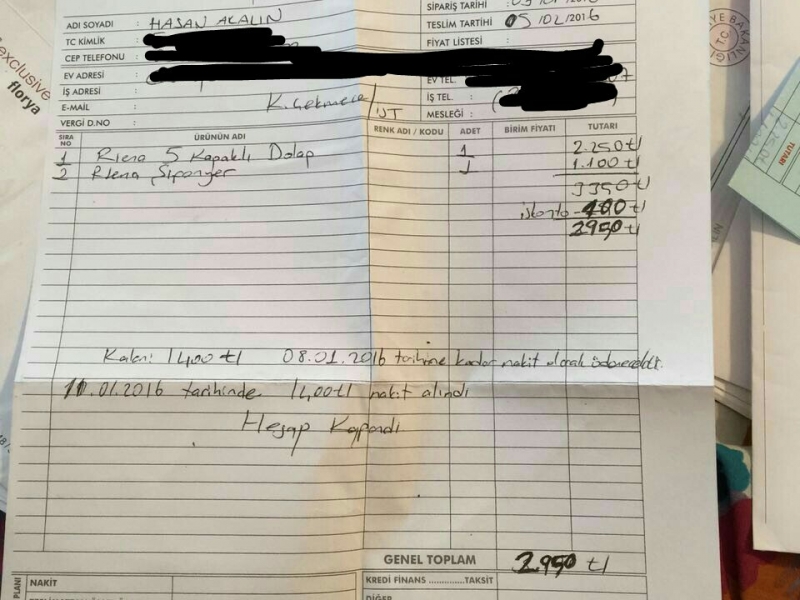 SİPARİŞ TARİHİ :
ADI SOYADI : HASAN ACALIN
TESLİM TARTİHİ 05/02/2016
TC KİMLİK :
FİYAT LİSTESİ :
CEP TELEFONU :
EV ADRESİ :
EV TEL.
İŞ ADRESİ :
İŞ TEL. :
E-MAİL : K.Çekmece/İST
MESLEĞİ :
VERGİ D.NO :
SIRA NO ÜRÜNÜN ADI RENK ADI / KODU ADET BİRİM FİYATI TUTARI
1 Riena 5 Kapaklı Dolap 1 2.250 tl
2 Riena Şifonyer 1 1.100 tl
3350 tl
iskonto -400 tl
2950 tl
Kalan: 1400 tl 08.01.2016 tarihine kadar nakit olarak ödenecektir.
11.01.2016 tarihinde 1400tl nakit alındı
Hesap Kapandı
GENEL TOPLAM 2.950 tl
PLANI
NAKİT
KREDİ FİNANS ............TAKSİT
DİĞER
exclusive
florya
T.C.
BAKANLIĞI
TUTARI